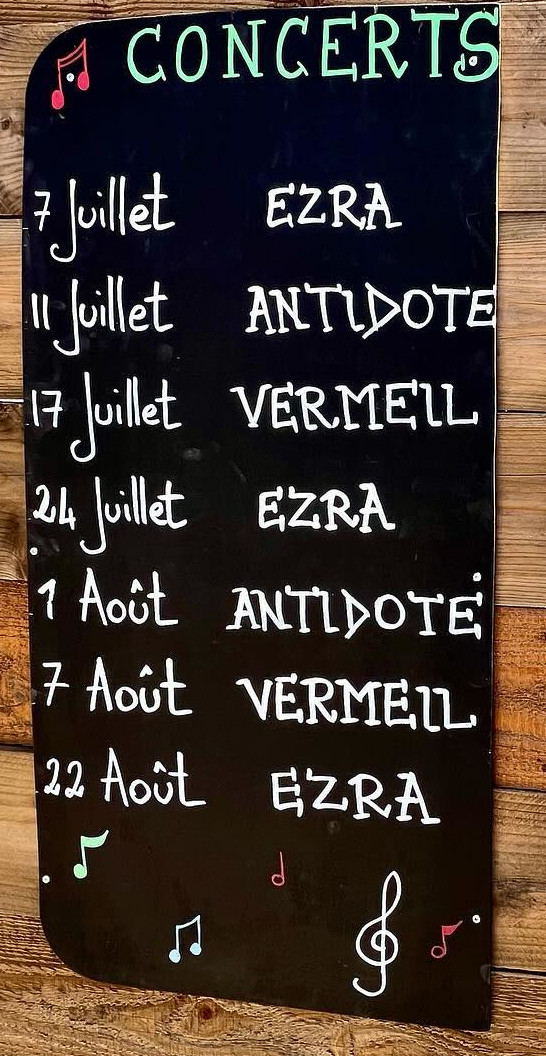 CONCERTS
7 Juillet EZRA
11 Juillet ANTIDOTE
17 Juillet VERMEIL
24 Juillet EZRA
1 Août ANTIDOTE
7 Août VERMEIL
22 Août EZRA